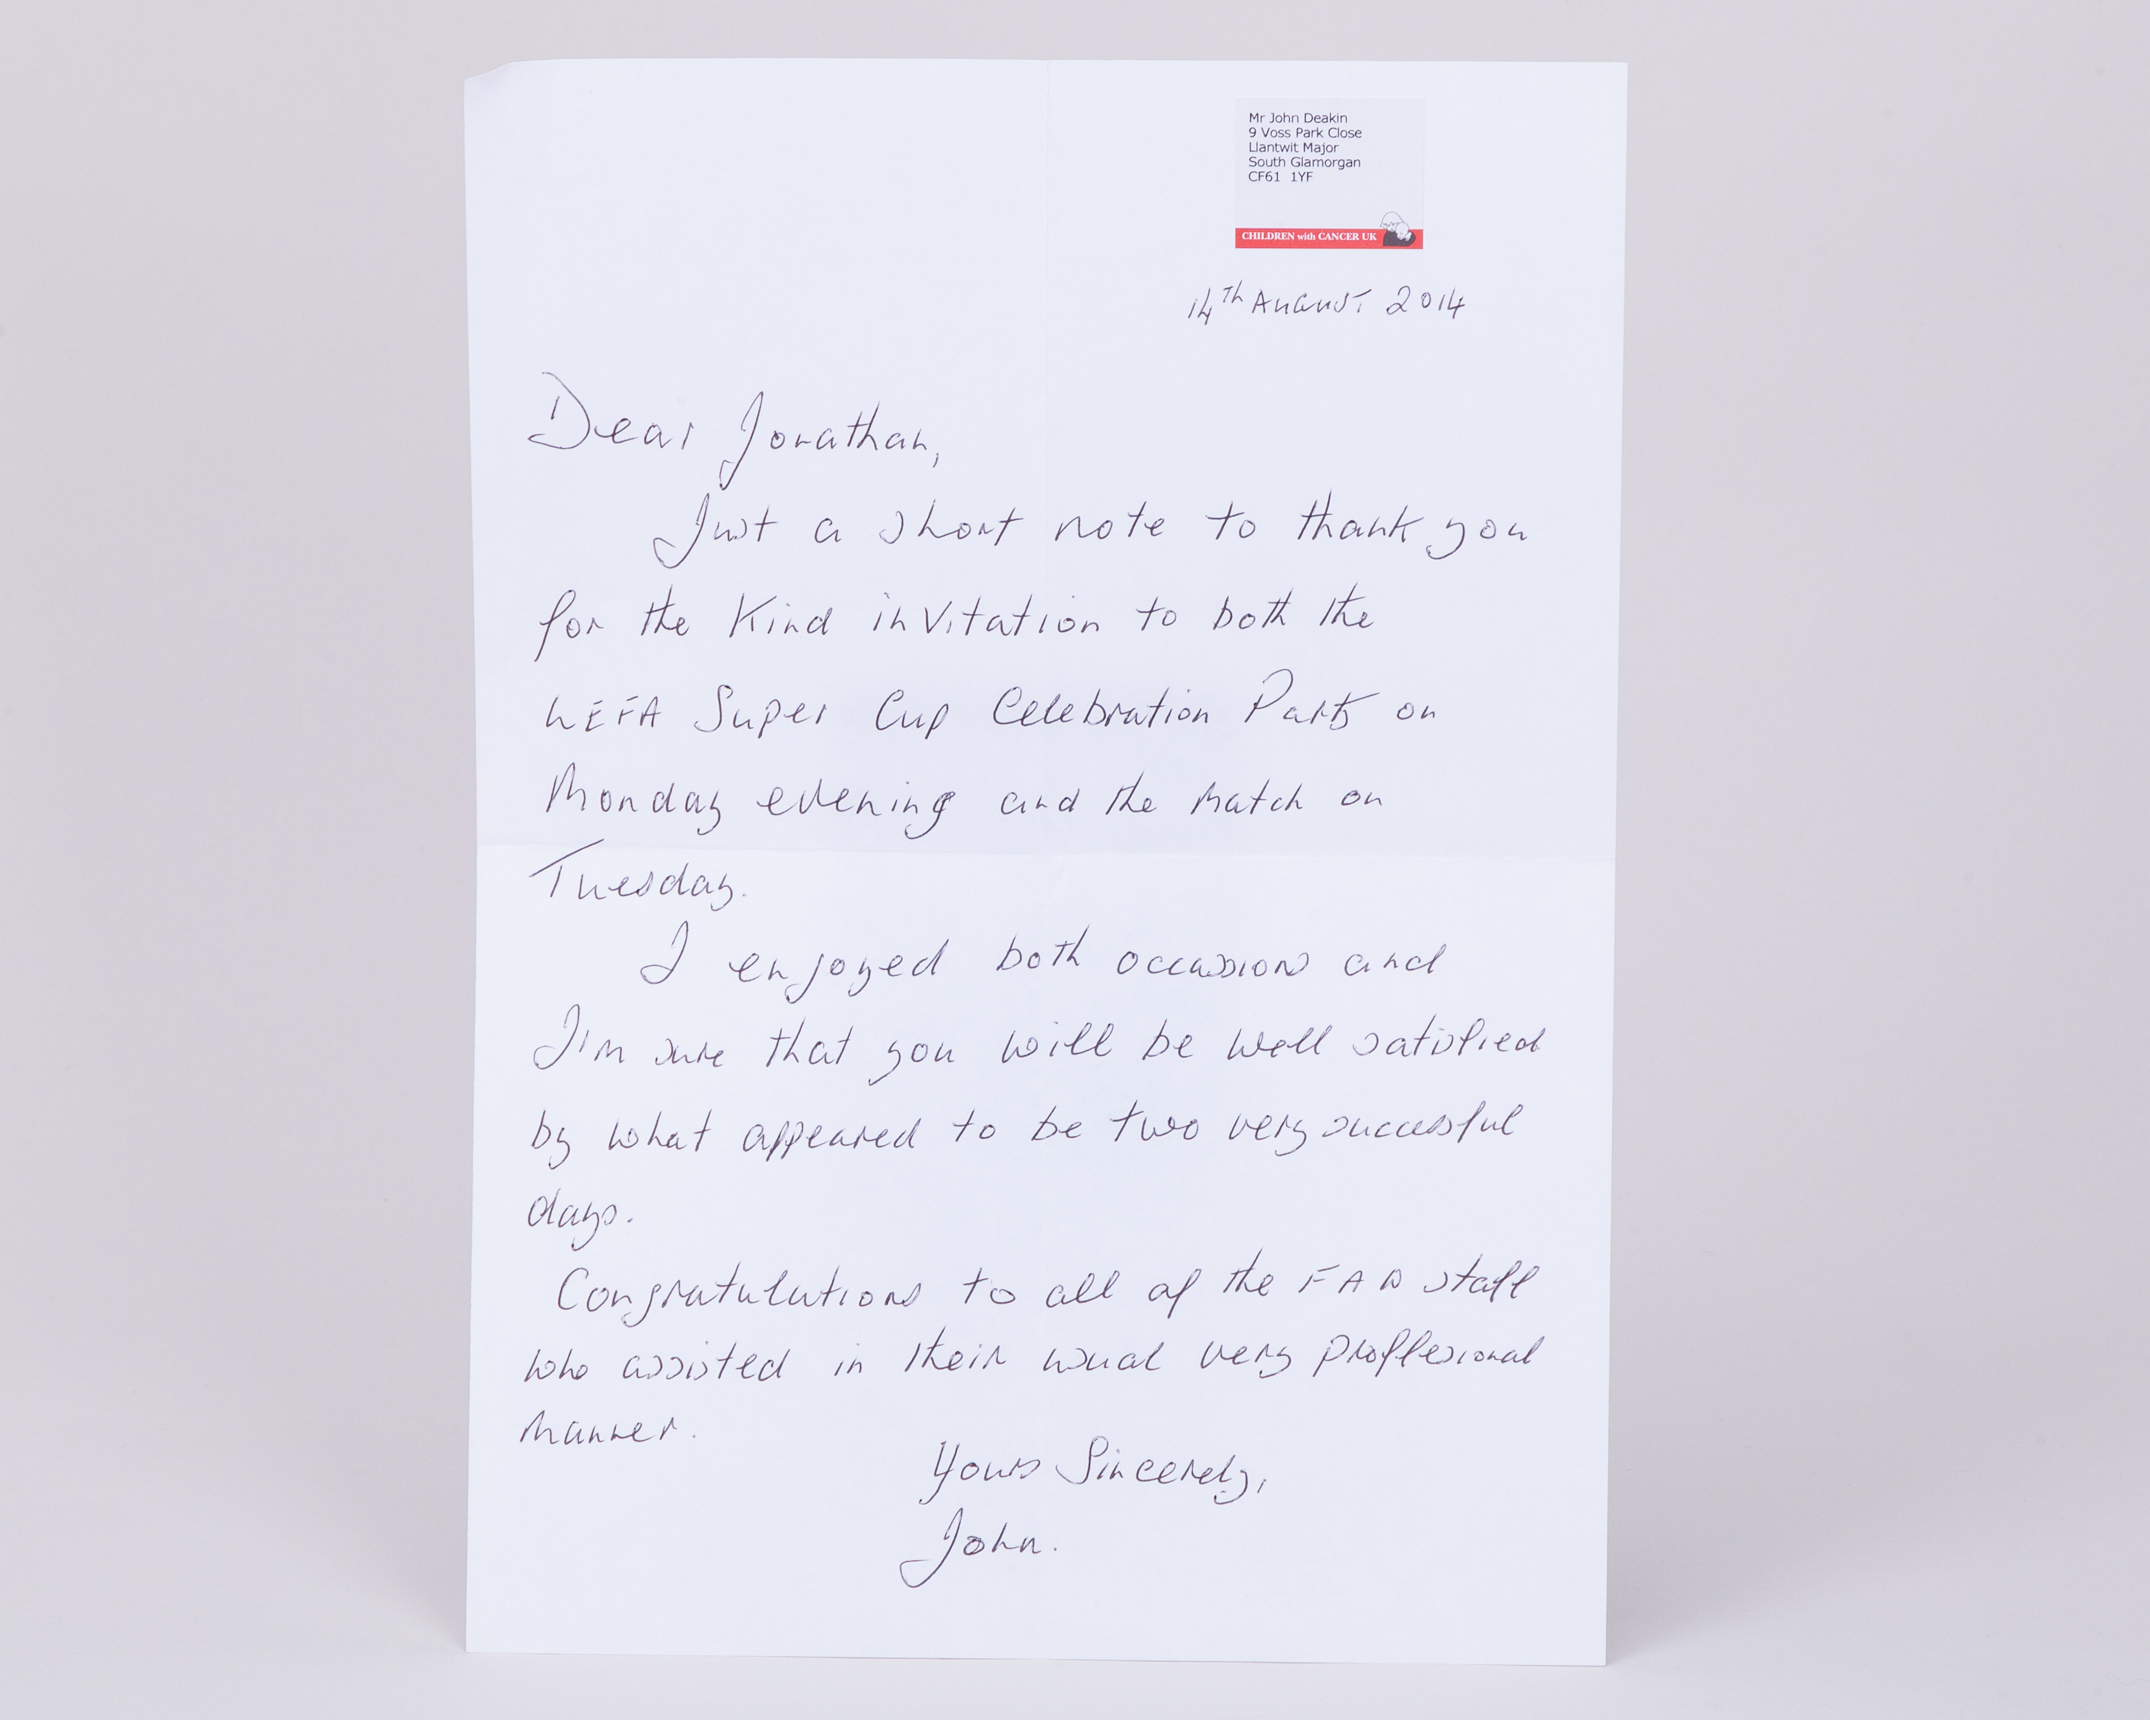 Mr John Deakin
9 Voss Park Close
Llantwit Major
South Glamorgan
CF61 1YF
CHILDREN with CANCER UK
14Th August 2014
Dear Jonathan,
Just a short note to thank you
for the Kind invitation to both the
UEFA Super Cup Celebration Party on
Monday evening and the Match on
Tuesday.
I enjoyed both occassions and
I'm sure that you will be well satisfied
by what appeared to be two very successful
days.
Congratulations to all of the FAW staff
who assisted in their usual very proffesional
Manner.
Yours Sincerely,
John.